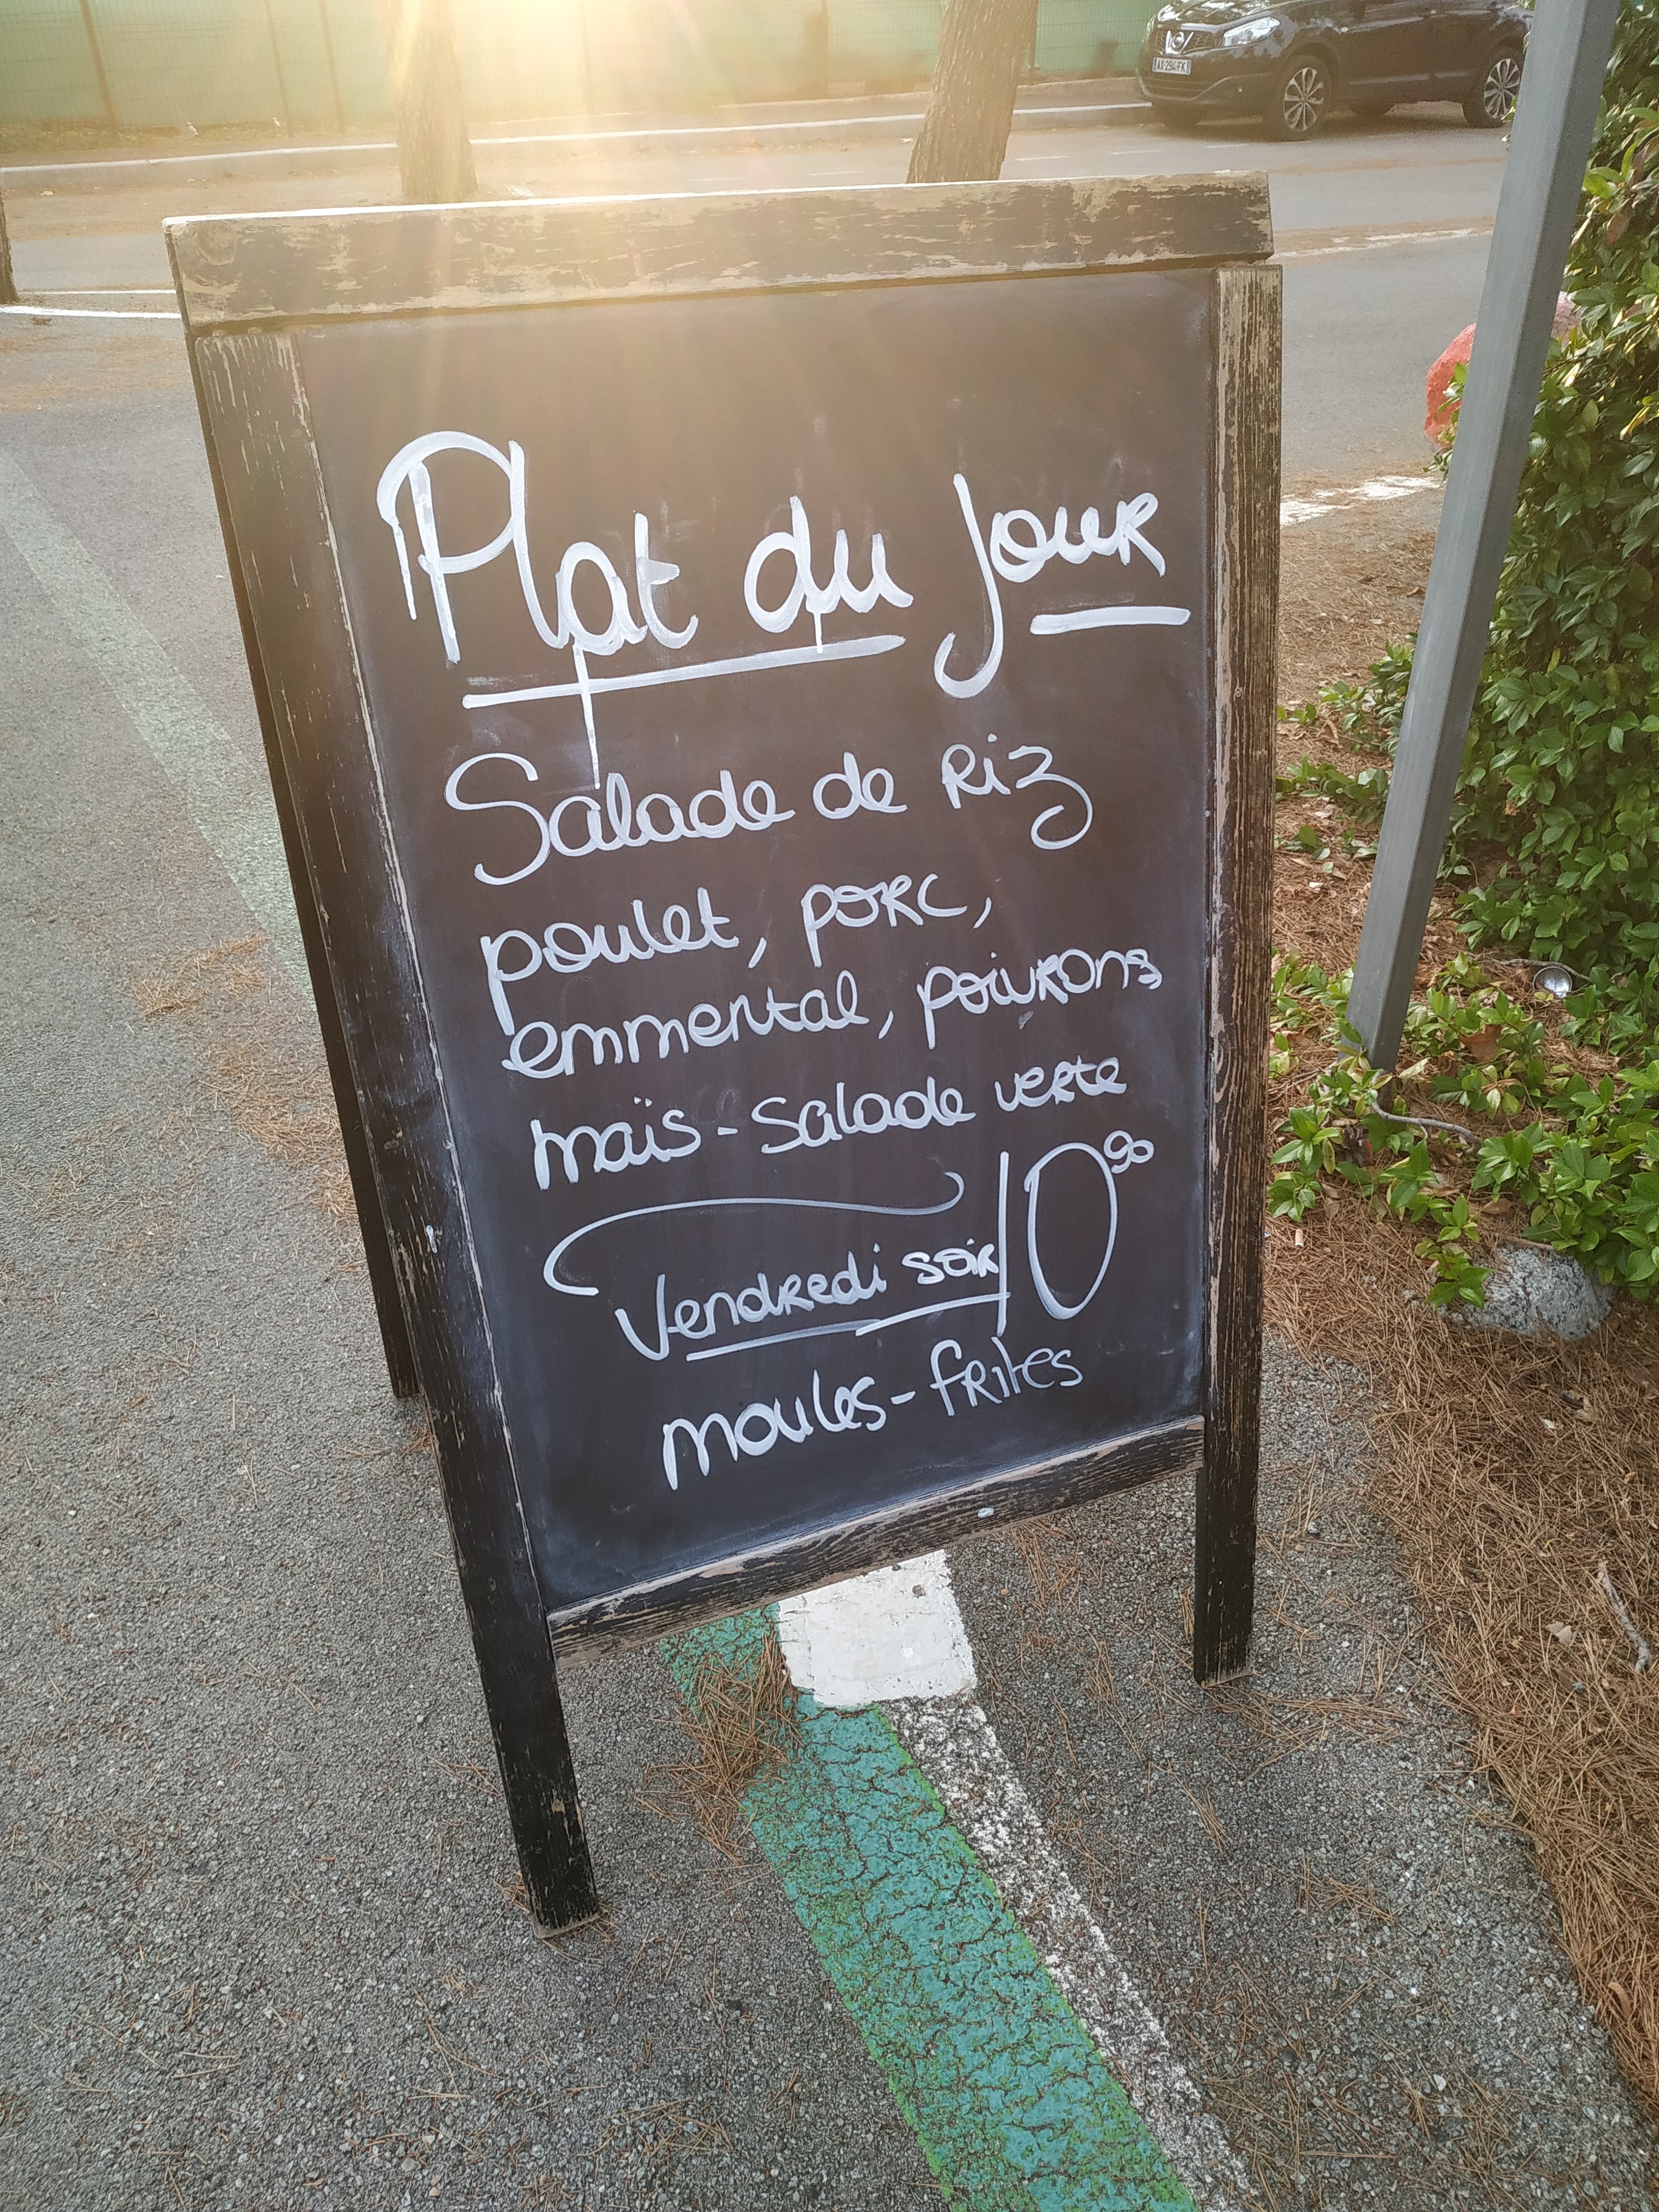 AX-294-FK
Plat du jour
Salade de Riz
poulet, porc,
emmental, poivrons
maïs - Salade verte
10⁹⁰
Vendredi soir
moules - frites